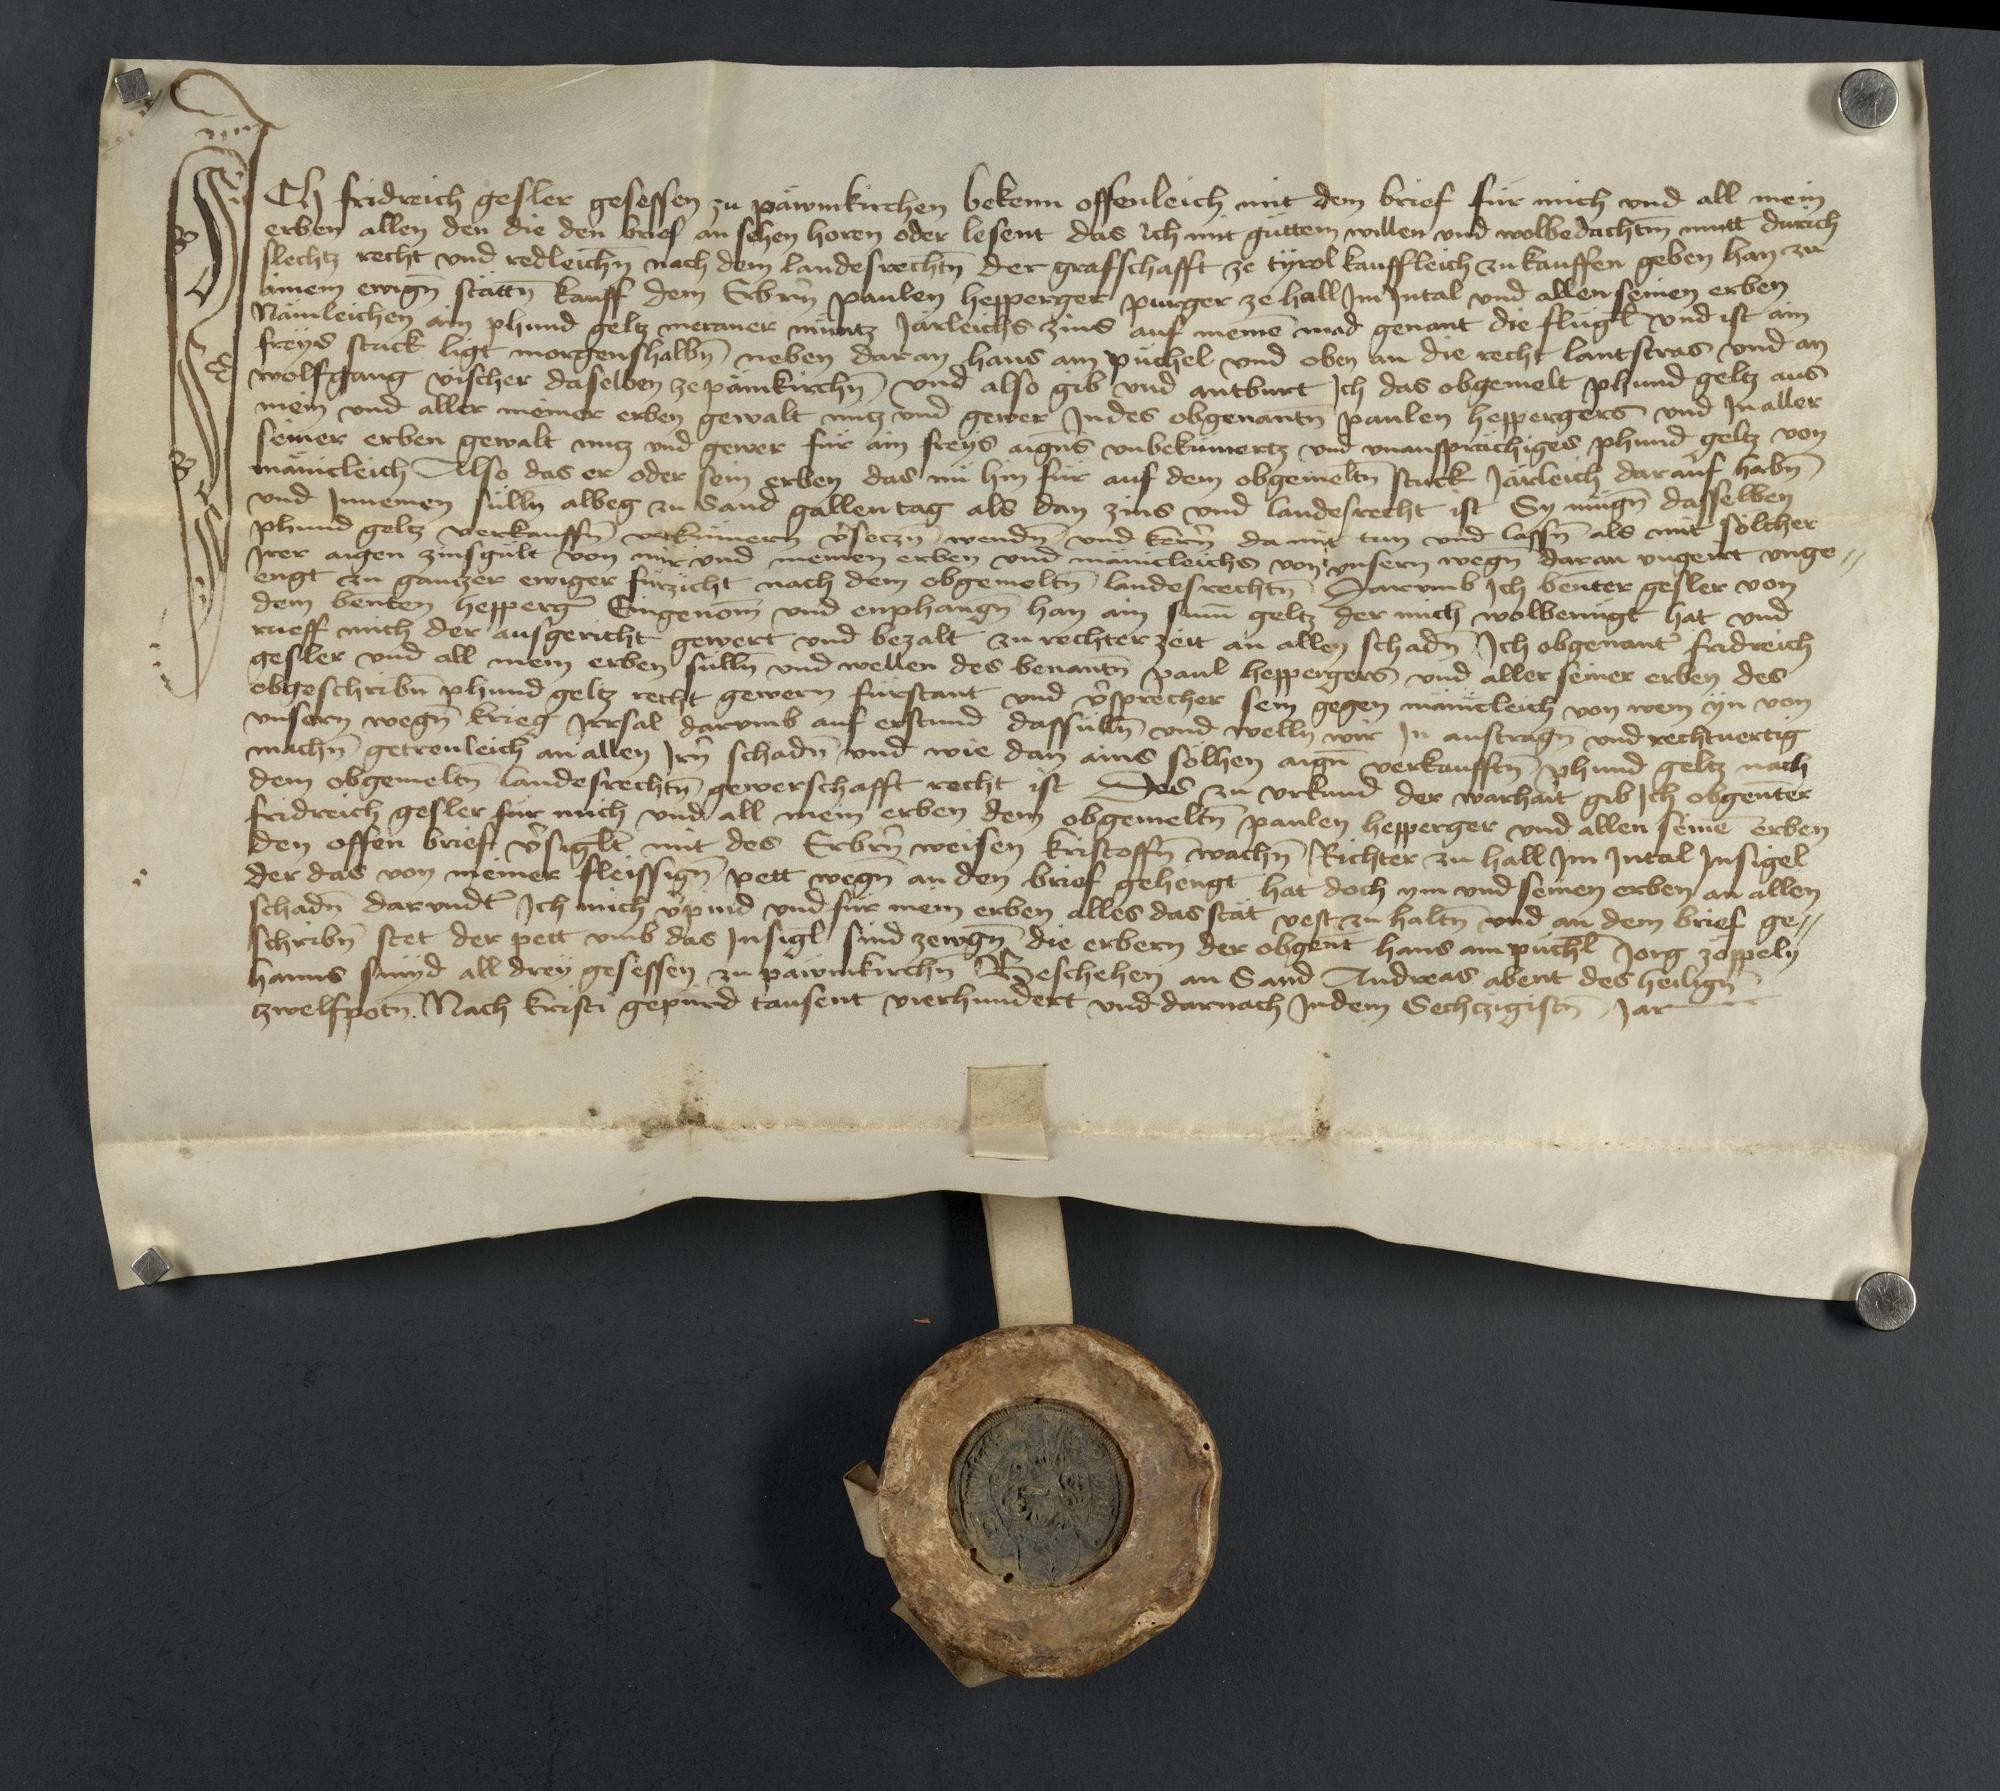 Ich fridreich gesler gesessen zu päwmkirchen bekenn offenleich mit dem brief für mich und all mein
erben allen den die den brief an sehen horen oder lesent das Ich mit güttem willen und wolbedachtm̄ mutt durich
slechtz recht und redleichn̄ nach dem landesrechtn̄ der grafschafft ze tyrol kauffleich zu kauffen geben han zu
ainem ewign̄ stättn̄ kauff dem Erbrn̄ paulen hepperger purger ze hall Im Intal und allen seinen erben
Nämleichen ain phund geltz meraner müntz Järleichs zins auf meinē mad genant die flügl̄ und ist ain
freys stuck ligt morgenshalbn̄ neben daran hans am püchel und oben an die recht lantstras und an
wolfgang vischer daselben ze pämkirchn̄ und also gib und antburt Ich das obgemelt phund geltz aus
mein und aller meiner erben gewalt nutz und gewer In des obgenantn̄ paulen heppergers und In aller
seiner erben gewalt nutz und gewer für ain freys aigns unbekümertz und unansprächiges phund geltz von
mänicleich Also das er oder sein erben das nü hin für auf dem obgemeltn̄ stuck Järleich darauf habn̄
und Innemen sülln̄ albeg zu Sand gallen tag als dan zins und landesrecht ist Sy mügn̄ dasselben
phund geltz verkauffn̄ verkümern v̄seczn̄ wendn̄ und kern̄ da mit tun und lassn̄ als mit sölcher
Irer aigen zinsgült von mir und meinen erben und mänicleichs von unsern wegn̄ daran ungeirt unge〃
engt zu gantzer ewiger fürzicht nach dem obgemeltn̄ landesrechtn̄ Darumb Ich benter gesler von
dem benten hepperḡ Eingenōm und enphangn̄ han ain sum̄ geltz der mich wolbenügt hat und
rueff mich der ausgericht gewert und bezalt zu rechter zeit an allen schadn̄ Ich obgenant̄ fridreich
gesler und all mein erben sülln̄ und wellen des benantn̄ paul heppergers und aller seiner erben des
obgeschribn̄ phund geltz recht gewern fürstant und v̄sprecher sein gegen mänicleich von wem yn von
unsern wegn̄ krieg Irrsal darumb auf erstund das sülln̄ und welln̄ wir In austragn̄ und rechtuertig
machn̄ getreuleich an allen Irn̄ schadn̄ und wie dan ains sölhen aign̄ verkaufftn̄ phund geltz nach
dem obgemeltn̄ landesrechtn̄ gewerschafft recht ist Des zu urkund der warhait gib Ich obgenter
fridreich gesler für mich und all mein erben dem obgemeltn̄ paulen hepperger und allen seinē erben
den offen brief v̄siglt̄ mit des Erbrn̄ weisen kristoffn̄ wachn̄ Richter zu hall Im Intal Insigel
der das von meiner fleissign̄ pett wegn̄ an den brief gehengt hat doch ym und seinen erben an allen
schadn̄ darundt̄ Ich mich v̄pind und für mein erben alles das stät vest zu haltn̄ und an dem brief ge〃
schribn̄ stet der pett umb das Insigl̄ sind zewgn̄ die erbern der obgent̄ hans am püchl̄ Jorg zöppeln
hanns smyd all drey gesessen zu päwmkirchn̄ Beschehen an Sand Andreas abent des heilign̄
tzwelfpotn̄ Nach kristi gepürd tausent vierhundert und darnach In dem Sechtzigistn̄ Jar